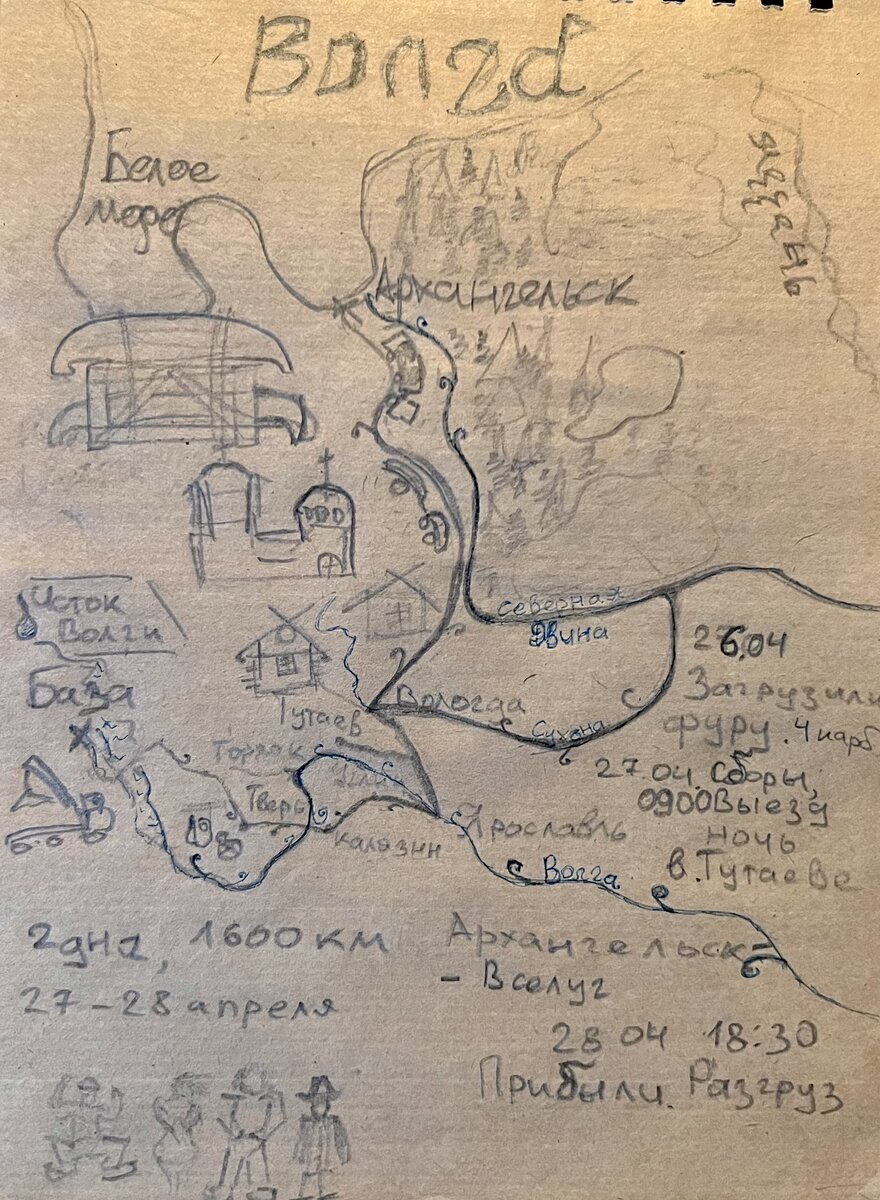 Волга
Белое
море
Архангельск
Исток
Волги
База
Северная
Двина
Вологда
Сухона
Тутаев
Торжок
Тверь
Калязин
Ярославль
Волга
26.04
Загрузили
фуру. 4 карб
27.04. Сборы,
0900 Выезд
ночь
в. Тутаеве
2 дна, 1600 км
27-28 апреля
Архангельск-
- Вселуг
28 04 18:30
Прибыли. Разгруз